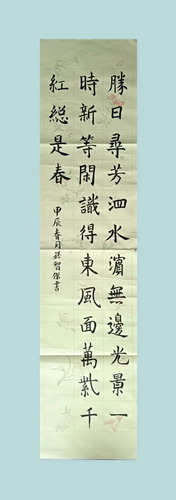 勝日尋芳泗水濵無邊光景一
時新等閑識得東風面萬紫千
紅総是春
甲辰春月孫智傑書